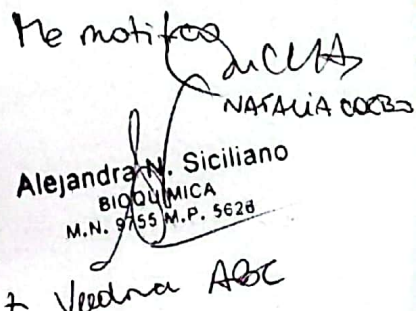 Me notifico
NATALIA
Alejandra N. Siciliano
BIOQUIMICA
M.N. 9755 M.P. 5628
ABC